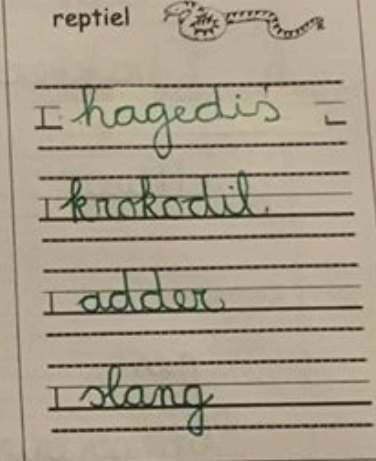 reptiel
hagedis
krokodil
adder
slang